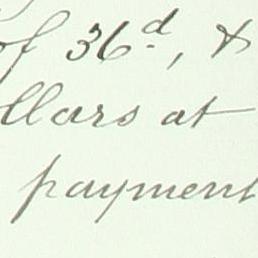 of 36d, &
llars at
payment